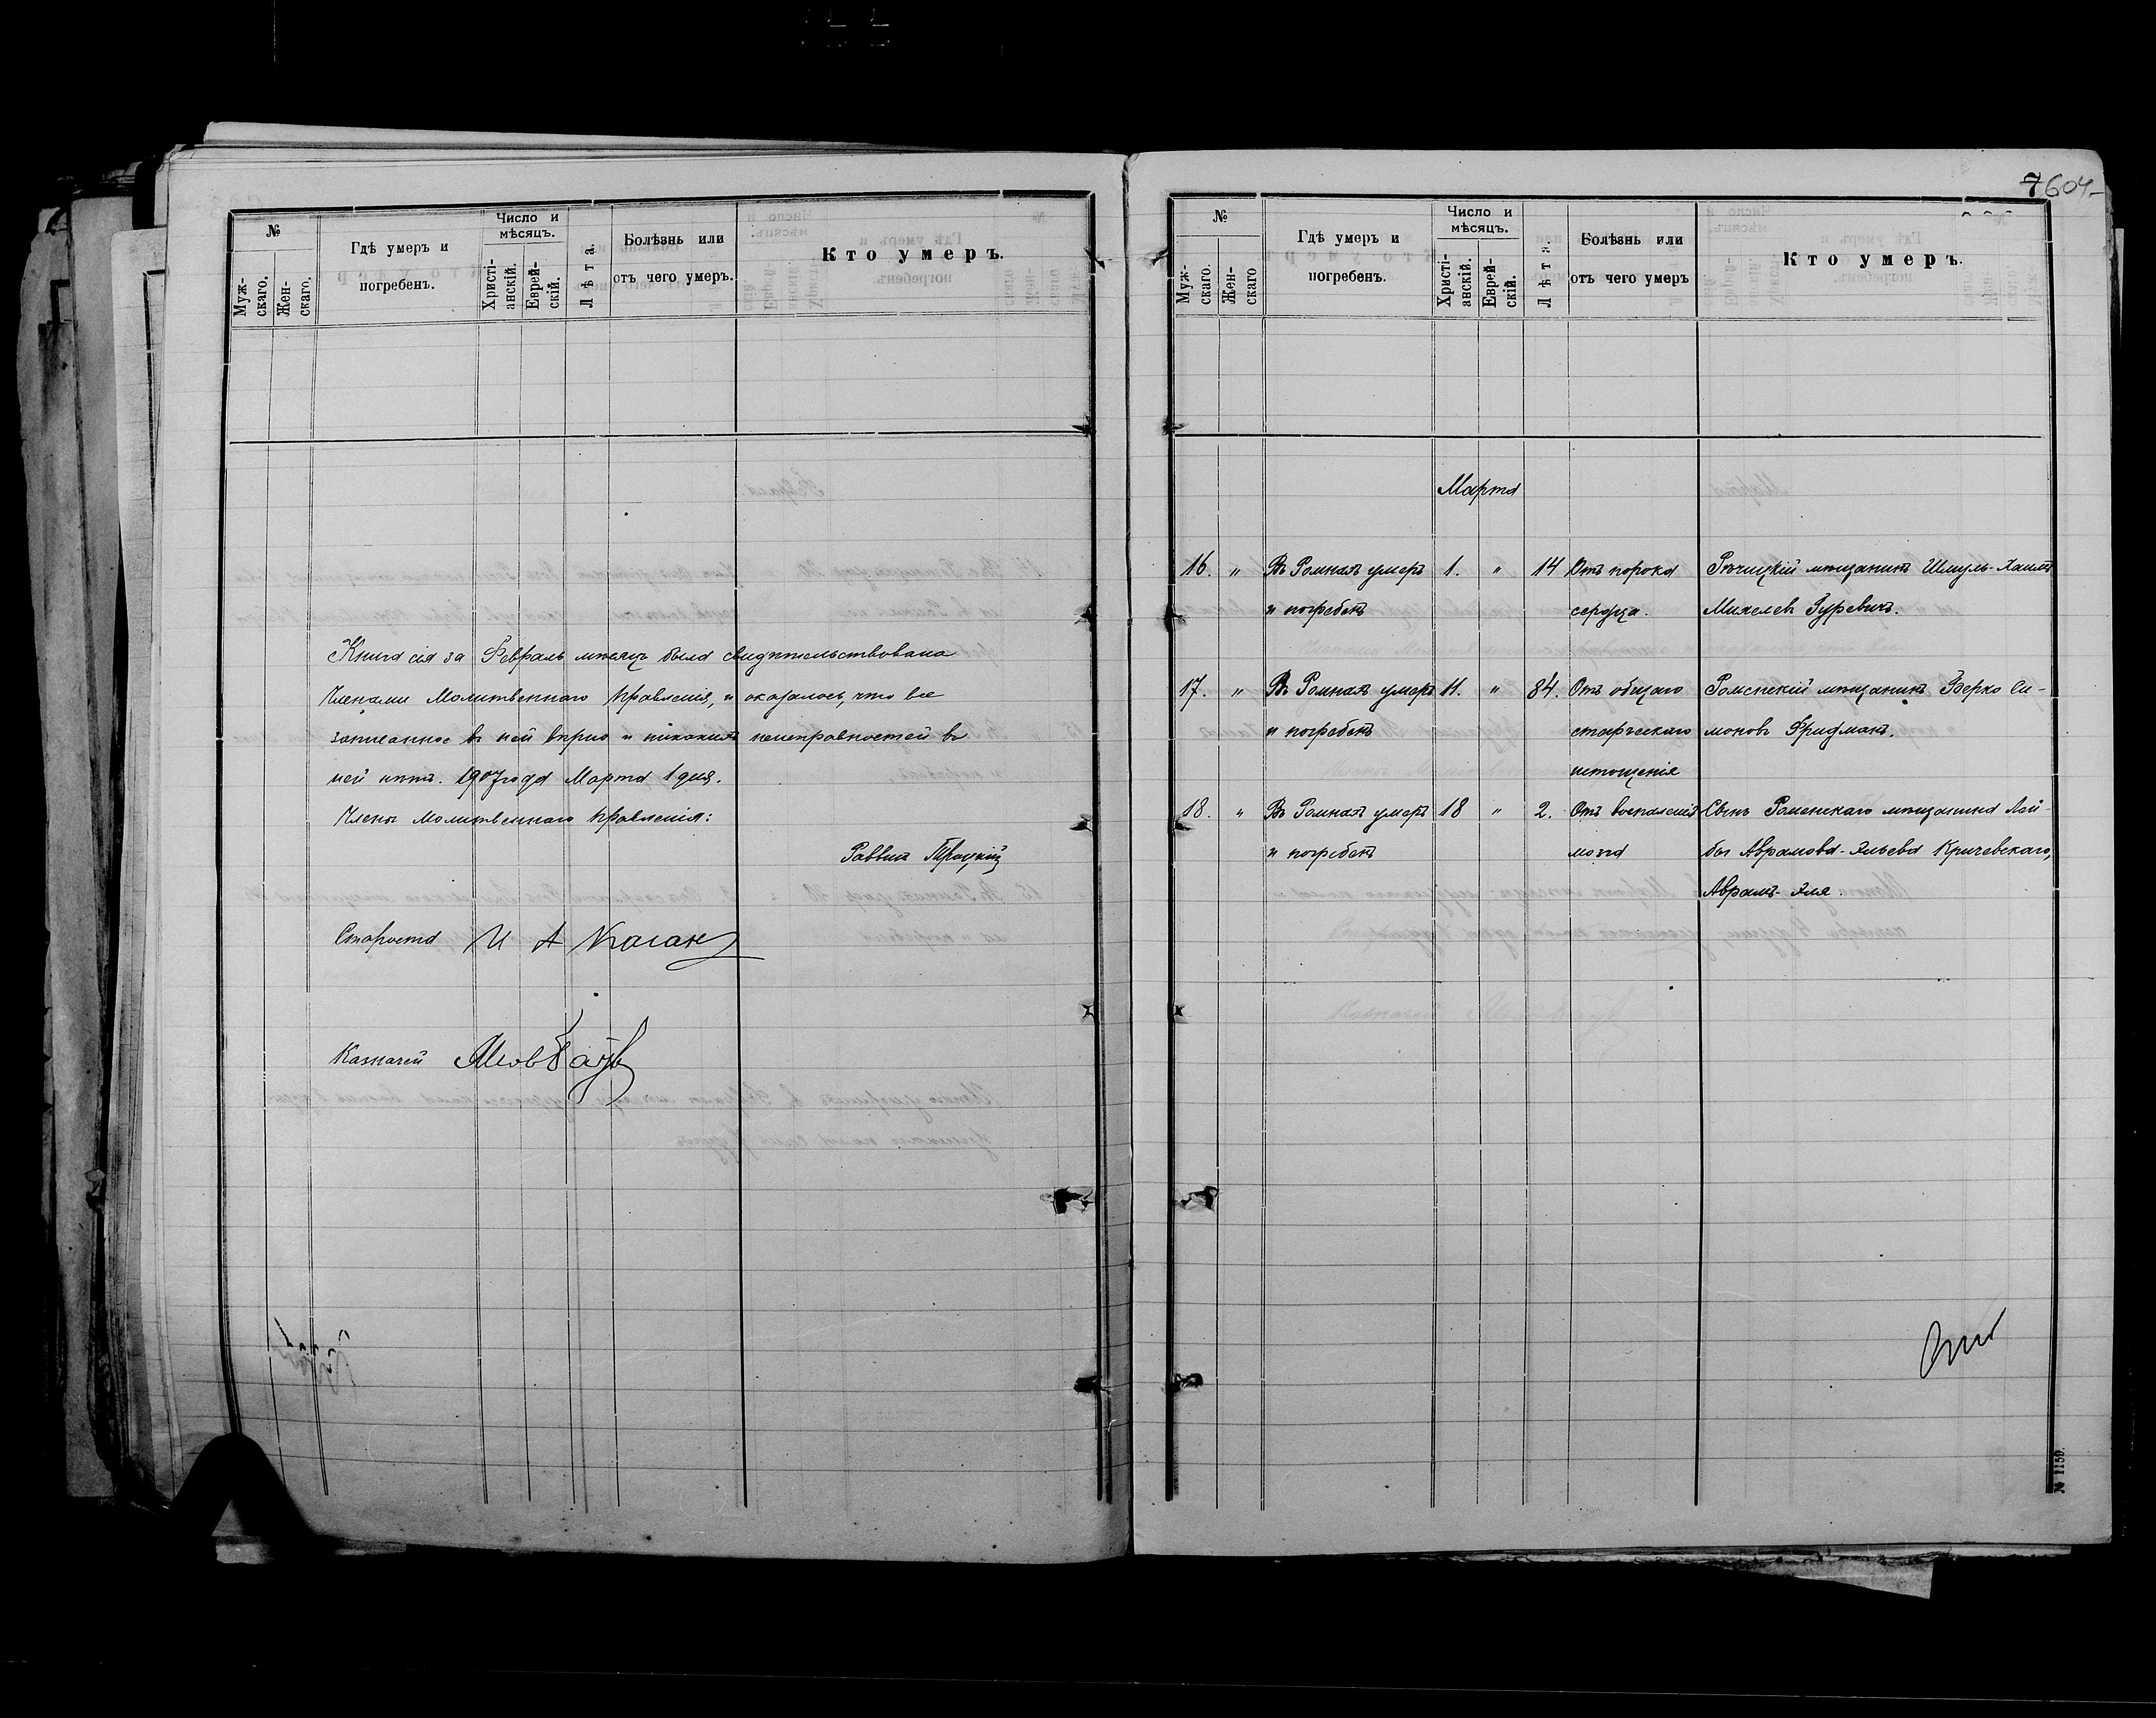 №
Муж-
скаго.
Жен-
скаго.
Гдѣ умеръ и
погребенъ.
Число и
мѣсяцъ.
Христі-
анскій.
Еврей-
скій.
Лѣта.
Болѣзнь или
отъ чего умеръ.
Кто умеръ.
Книга сія за Февраль мѣсяцъ была свидѣтельствована
Членами Молитвеннаго Правленія, и оказалось, что все
записанное въ ней вѣрно и никакихъ неисправностей въ
ней нѣтъ. 1907 года Марта 1 дня.
Члены Молитвеннаго Правленія:
Раввинъ Троцкій
Староста И А Каган
Казначей
7 604
№
Муж-
скаго.
Жен-
скаго
Гдѣ умеръ и
погребенъ.
Число и
мѣсяцъ.
Христі-
анскій.
Еврей-
скій.
Лѣта.
Болѣзнь или
отъ чего умеръ
Кто умеръ.
Марта
16. " Въ Ромнахъ умеръ 1. " 14 Отъ порока Рѣчицкій мѣщанинъ Шмуль-Хаимъ
и погребенъ сердца. Михелевъ Гуревичъ.
17. " Въ Ромнахъ умеръ 11. " 84. Отъ общаго Роменскій мѣщанинъ Берко Си-
и погребенъ старческаго моновъ Фридманъ.
истощенія
18. " Въ Ромнахъ умеръ 18 " 2. Отъ воспаленія Сынъ Роменскаго мѣщанина Лей-
и погребенъ мозга бы Абрамова-Эльева Кричевскаго,
Абрамъ-Эля.
№ 1159.